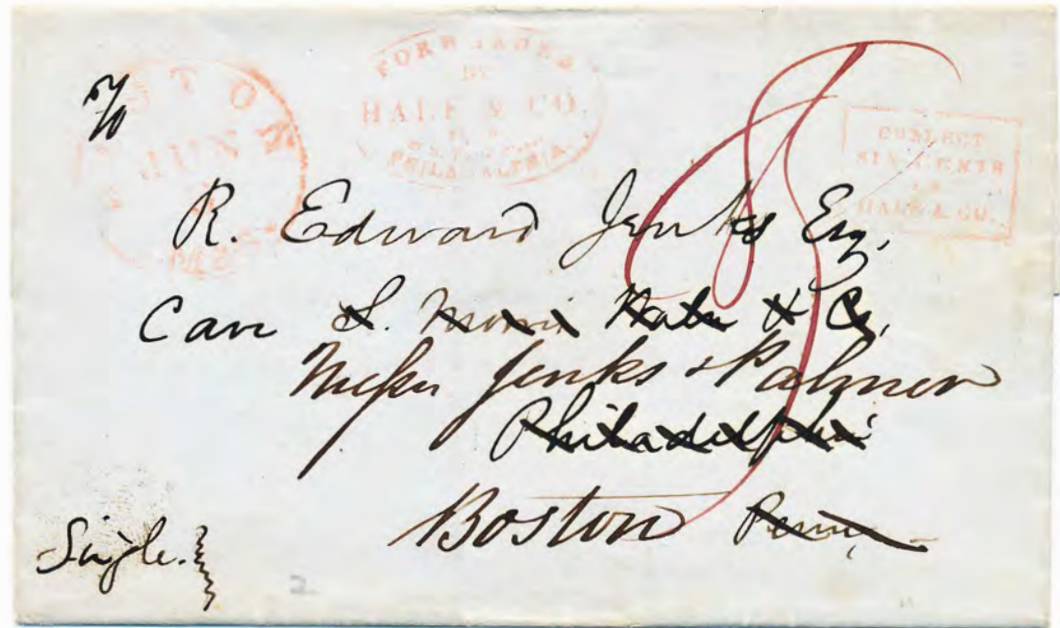 FORWARDED
BY
HALE & CO.
PHILADELPHIA.
TON
JUN
COLLECT
SIX CENTS
FOR
HALE & CO.
R. Edward Jenks Esq,
Care S. Morris & Co,
Messrs Jenks & Palmer
Philadelphia
Boston Penn,
Single.
2